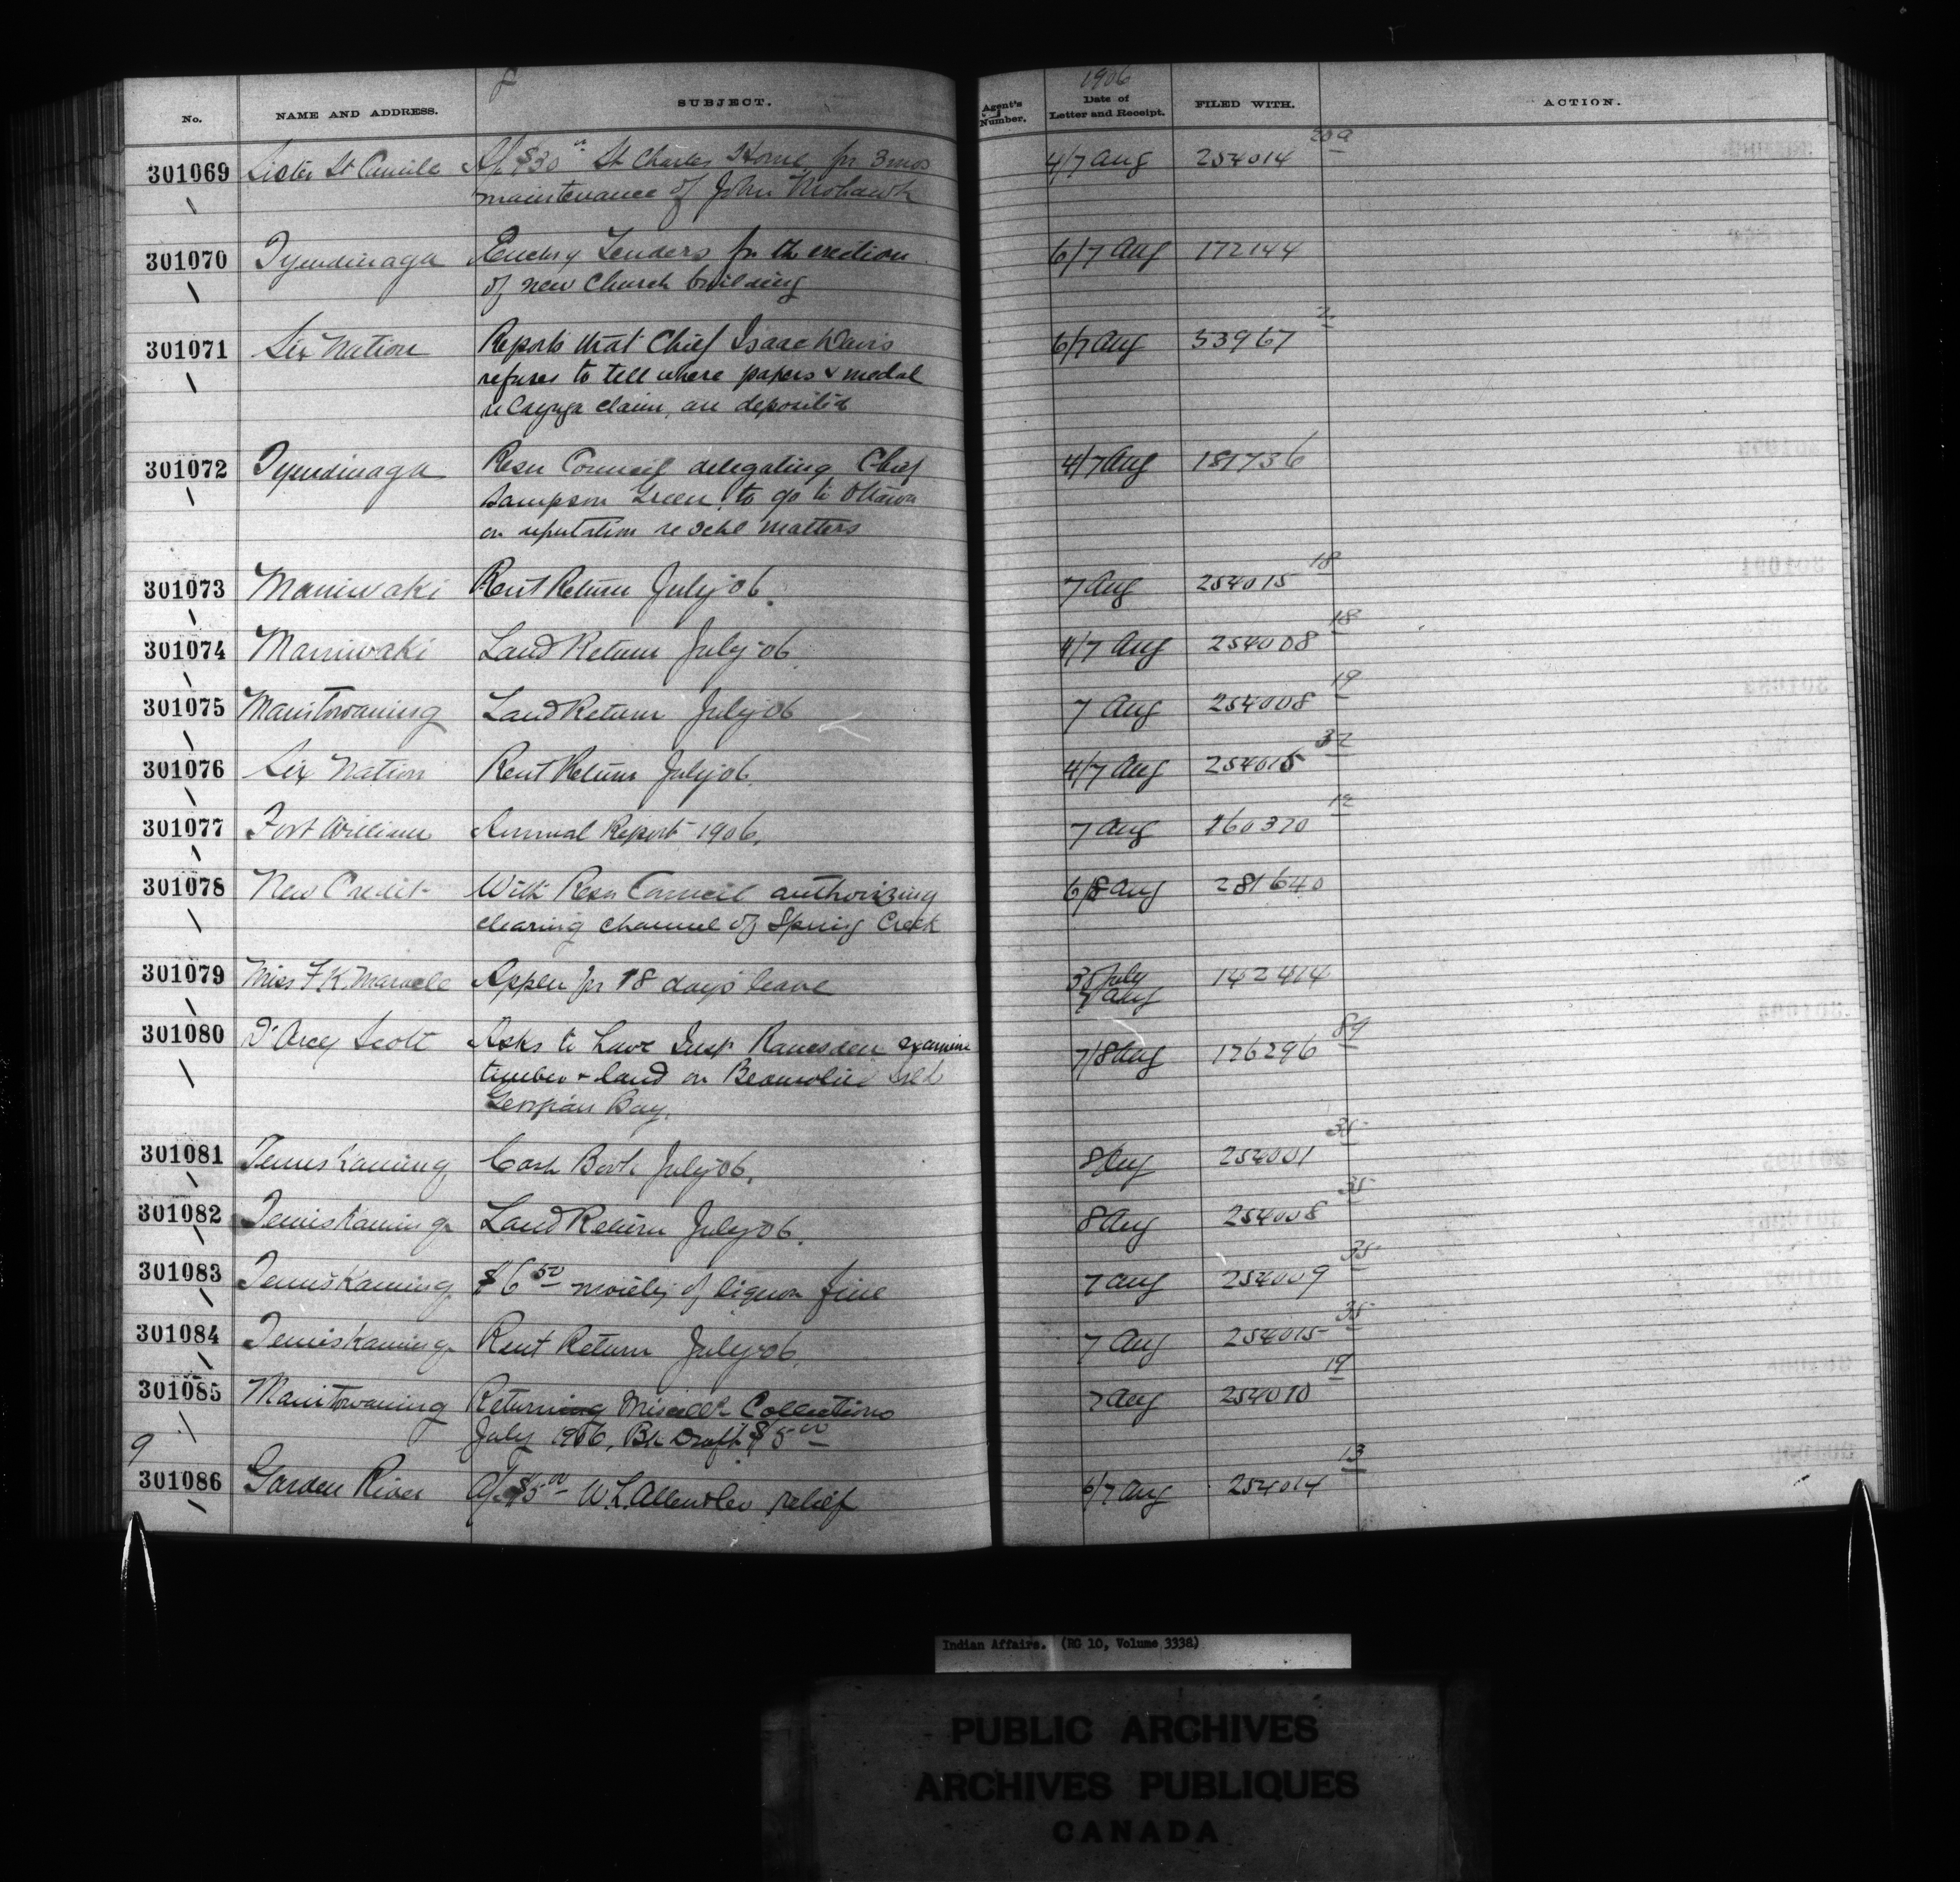 1906
No. NAME AND ADDRESS. SUBJECT. Agent's Number. Date of Letter and Receipt. FILED WITH. ACTION.
301069 Sister St Camile A/c $30 00 St Charles Home for 3 mos 4/7 Aug 254014 20a
maintenance of John Mohawk
301070 Tyendinaga Enclsg Tenders for the erection 6/7 Aug 172144
of new Church building
301071 Six Nation Reports that Chief Isaac Davis 6/7 Aug 53967 2
refuses to tell where papers & medal
re Cayuga claim, are deposited
301072 Tyendinaga Resn Council delegating Chief 4/7 Aug 181736
Sampson Green to go to Ottawa
on reputation re schl matters
301073 Maniwaki Rent Return July 06. 7 Aug 254015 18
301074 Maniwaki Land Return July 06. 4/7 Aug 254008 18
301075 Manitowaning Land Return July 06 7 Aug 254008 19
301076 Six Nation Rent Return July 06. 4/7 Aug 254015 32
301077 Fort William Annual Report 1906. 7 Aug 160320 12
301078 New Credit With Resn Council authorizing 6/8 Aug 281640
clearing channel of Spring Creek
301079 Miss F K Appln for 18 days leave July 142414
Aug
301080 D'Arcy Scott Asks to have Insp Ramsden examine 7/8 Aug 176296 89
timber & land on Beausoliel Isld
Georgian Bay.
301081 Temiskaming Cash Book July 06. 8 Aug 254001 35
301082 Temiskaming Land Return July 06. 8 Aug 254008 35
301083 Temiskaming $6 50 moiety of liquor fine 7 Aug 254009 35
301084 Temiskaming Rent Return July 06. 7 Aug 254015 35
301085 Manitowaning Returning Miscellk Collections 7 Aug 254010 19
July 1906, Bk Draft $5 00
9
301086 Garden River A/c $5 00 W. L. relief 6/7 Aug 254014 13
Indian Affairs. (RG 10, Volume 3338)
PUBLIC ARCHIVES
ARCHIVES PUBLIQUES
CANADA